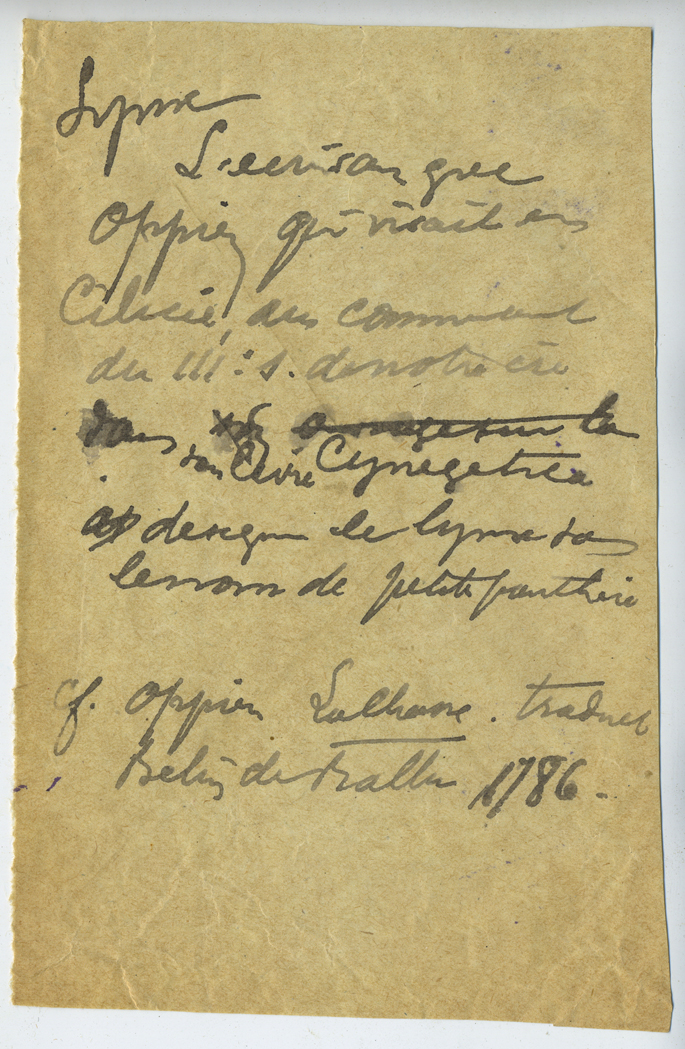 Lynx
L'ecrivain grec
Oppien qui vivait en
Cilicie, au comment
du III: s. de notre ère
dans ouvrage sur la
son livre Cynegetica
designe le lynx sous
le nom de petite panthère
cf. Oppien La Chasse. traduct
Belin de Ballu 1786.